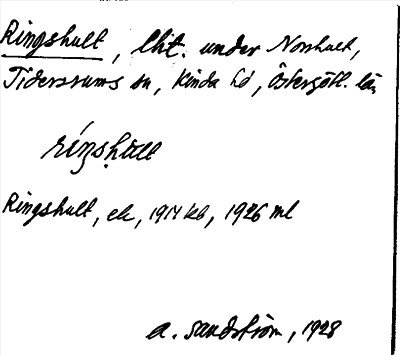 Ringshult, lht. under Norrhult,
Tidersrums sn, Kinda hd, Östergötl. län
ríŋsḥúlt
Ringshult, ek, 1914 kb, 1926 ml
A. Sandström, 1928